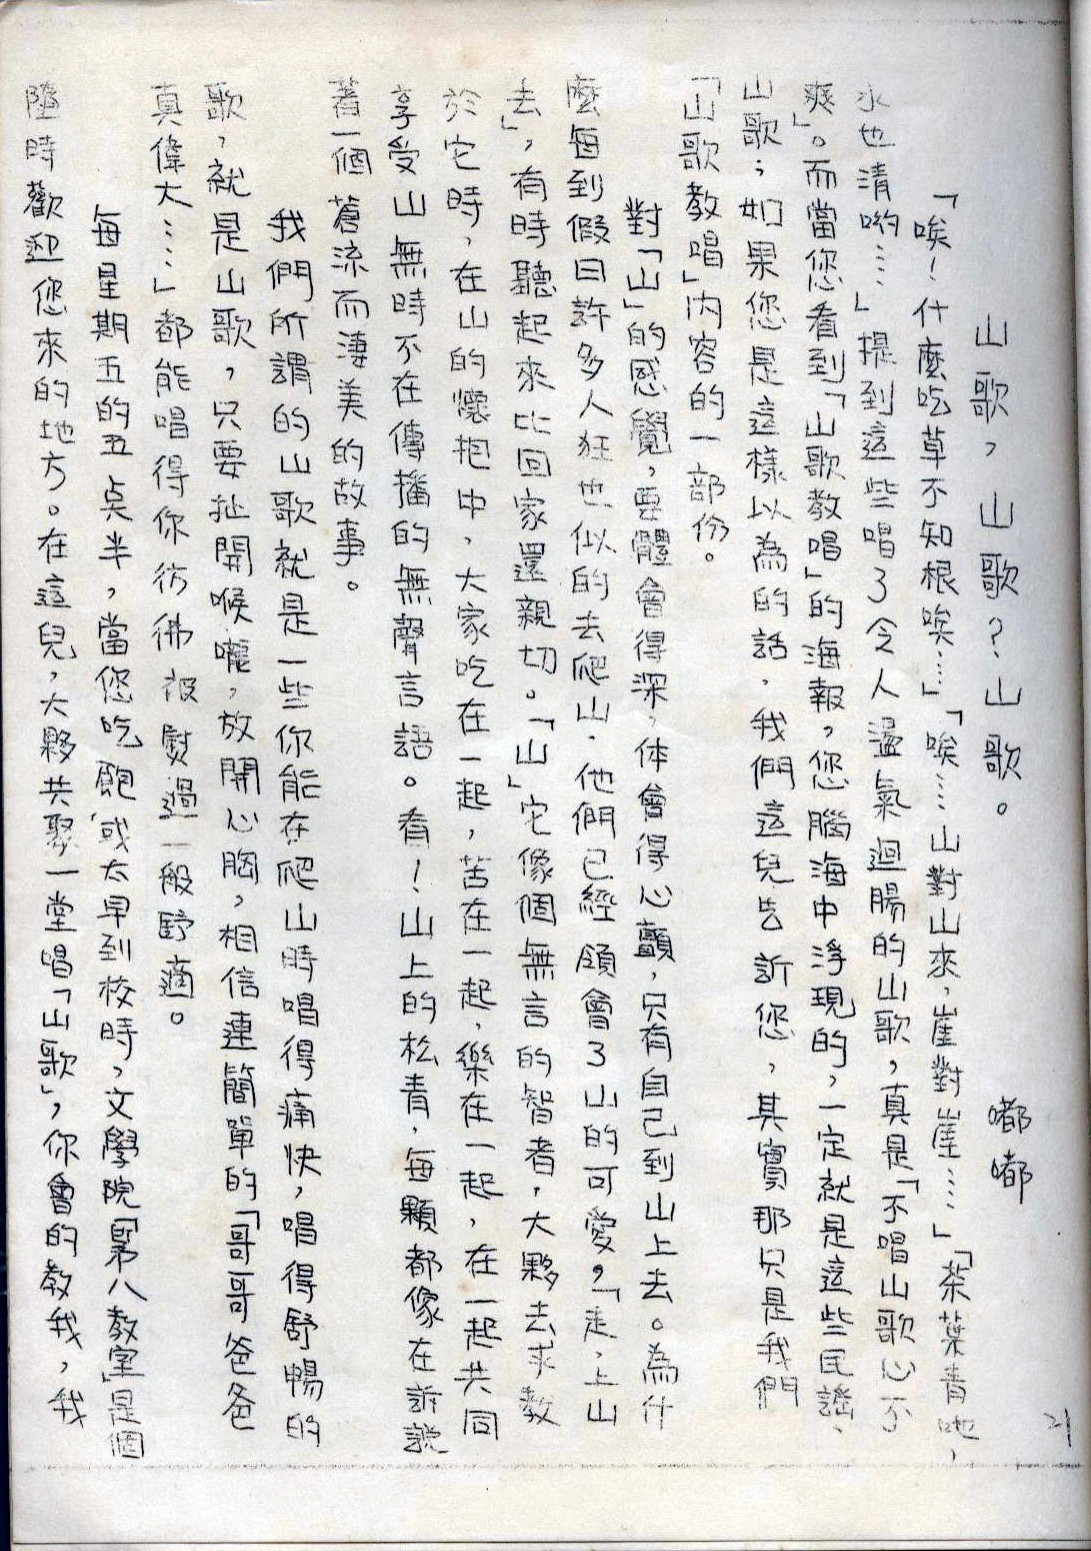 山歌,山歌?山歌。
嘟嘟
「唉!什麼吃草不知根唉……」「唉……山對山來,崖對崖……」「茶葉青吔,
水也清喲……」提到這些唱了令人盪氣迴腸的山歌,真是「不唱山歌心不
爽」。而當您看到「山歌教唱」的海報,您腦海中浮現的,一定就是這些民謠、
山歌;如果您是這樣以為的話,我們這兒告訴您,其實那只是我們
「山歌教唱」內容的一部份。
對「山」的感覺,要體會得深,体會得心顫,只有自己到山上去。為什
麼每到假日許多人狂也似的去爬山,他們已經領會了山的可愛。「走,上山
去」,有時聽起來比回家還親切。「山」它像個無言的智者,大夥去求教
於它時,在山的懷抱中,大家吃在一起,苦在一起,樂在一起,在一起共同
享受山無時不在傳播的無聲言語。看!山上的松青,每顆都像在訴說
著一個蒼流而淒美的故事。
我們所謂的山歌就是一些你能在爬山時唱得痛快,唱得舒暢的
歌,就是山歌,只要扯開喉嚨,放開心胸,相信連簡單的「哥哥爸爸
真偉大……」都能唱得你彷彿被熨過一般舒適。
每星期五的五点半,當您吃飽,或太早到校時,文學院「第八教室」是個
隨時歡迎您來的地方。在這兒,大夥共聚一堂唱「山歌」,你會的教我,我
21